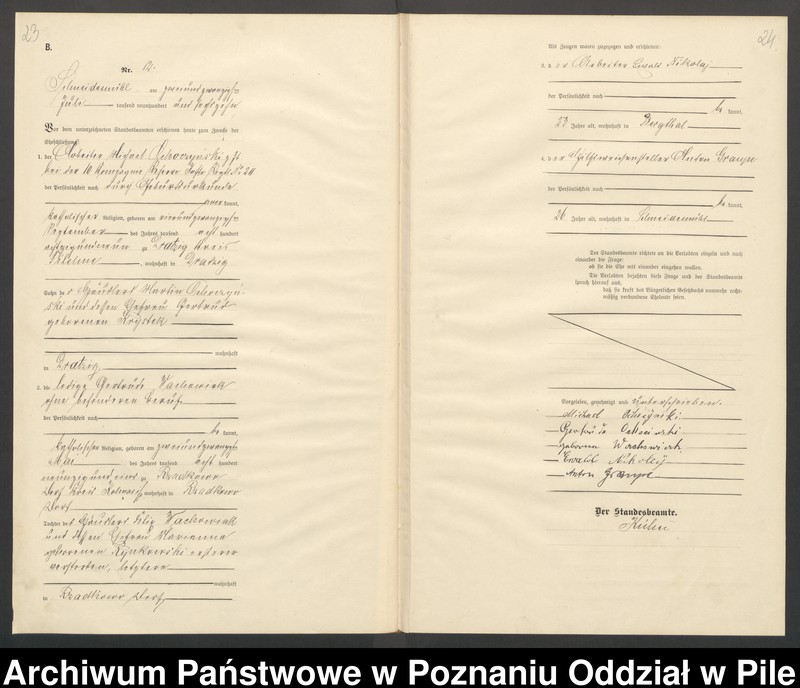 23
B.
Nr. 12.
Schneidemühl am zweiundzwanzigsten
Juli tausend neunhundert und sechzehn
Vor dem unterzeichneten Standesbeamten erschienen heute zum Zwecke der
Eheschließung:
1. der Arbeiter Michael
bei der 10 Kompagnie
der Persönlichkeit nach durch Geburtsurkunde
kannt,
katholischer Religion, geboren am vierundzwanzigsten
September des Jahres tausend acht hundert
zu Dratzig Kreis
Filehne, wohnhaft in Dratzig
Sohn des Häuslers Martin
und dessen Ehefrau Gertrud
geborenen Krystek
wohnhaft
in Dratzig
2. die ledige Gertrude Wachowiak
ohne besonderen Beruf
der Persönlichkeit nach
be kannt,
katholischer Religion, geboren am zweiundzwanzigsten
Mai des Jahres tausend acht hundert
neunzig und eins zu Radkowo
Dorf Kreis wohnhaft in Radkowo
Dorf
Tochter des Häuslers Felix Wachowiak
und dessen Ehefrau Marianna
geborenen Rynkowski ersterer
verstorben, letztere
wohnhaft
in Radkowo Dorf
24
Als Zeugen waren zugezogen und erschienen:
3. der Arbeiter Ewald Nikolaj
der Persönlichkeit nach
be kannt,
23 Jahre alt, wohnhaft in Bergthal
4. der Anton Grampe
der Persönlichkeit nach
be kannt,
26 Jahre alt, wohnhaft in Schneidemühl
Der Standesbeamte richtete an die Verlobten einzeln und nach
einander die Frage:
ob sie die Ehe mit einander eingehen wollen.
Die Verlobten bejahten diese Frage und der Standesbeamte
sprach hierauf aus,
daß sie kraft des Bürgerlichen Gesetzbuchs nunmehr recht-
mäßig verbundene Eheleute seien.
Vorgelesen, genehmigt und unterschrieben.
Michael
Gertrude
geborene Wachowiak
Ewald Nikolaj
Anton Grampe
Der Standesbeamte.
Archiwum Państwowe w Poznaniu Oddział w Pile